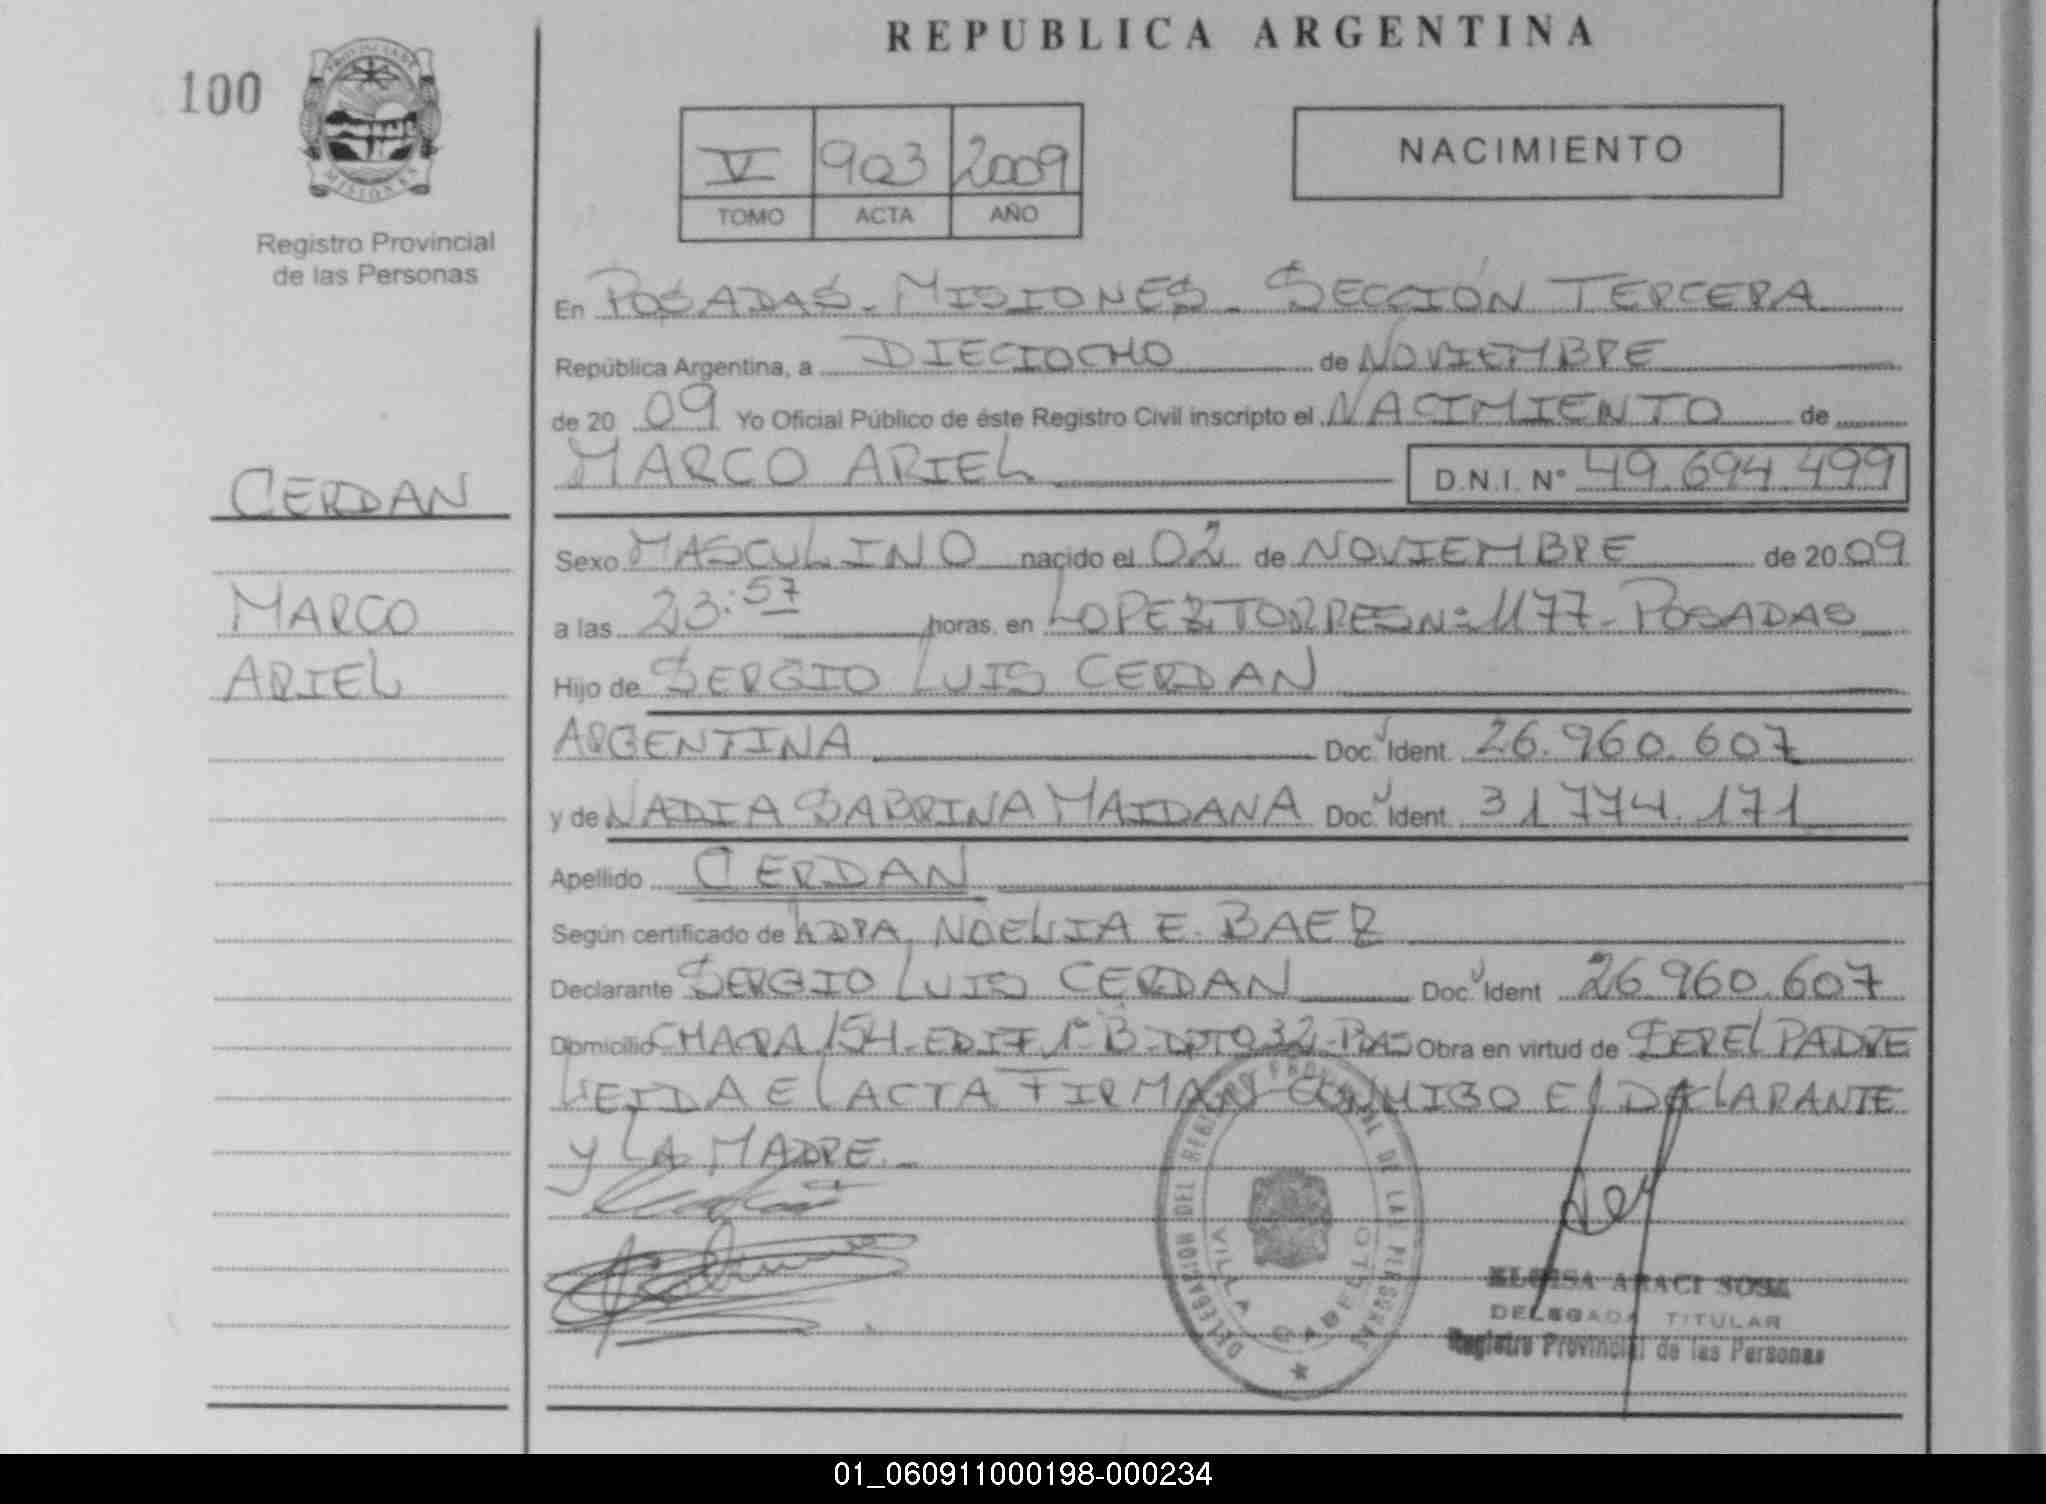 REPUBLICA ARGENTINA
100
PROVINCIA DE
MISIONES
Registro Provincial
de las Personas
V 903 2009
TOMO ACTA AÑO
NACIMIENTO
En POSADAS - MISIONES - SECCIÓN TERCERA
República Argentina, a DIECIOCHO de NOVIEMBRE
de 20 09 Yo Oficial Público de éste Registro Civil inscripto el NACIMIENTO de
MARCO ARIEL D.N.I. Nº 49.694.499
CERDAN
MARCO
ARIEL
Sexo MASCULINO nacido el 02 de NOVIEMBRE de 20 09
a las 23:57 horas, en LOPEZ TORRES Nº 1177 - POSADAS
Hijo de SERGIO LUIS CERDAN
ARGENTINA Doc. Ident. 26.960.607
y de NADIA SABRINA MAIDANA Doc. Ident. 31.774.171
Apellido CERDAN
Según certificado de LA DRA. NOELIA E. BAEZ
Declarante SERGIO LUIS CERDAN Doc. Ident 26.960.607
Domicilio CHACRA 154 - EDIF 1º B - DPTO 32 - PDAS Obra en virtud de SER EL PADRE
LEIDA EL ACTA FIRMAN CONMIGO El DECLARANTE
y LA MADRE. -
DELEGACION DEL REGISTRO PROVINCIAL DE LAS PERSONAS
VILLA CABELLO
ELOISA ARACI SOSA
DELEGADA TITULAR
Registro Provincial de las Personas
01_060911000198-000234